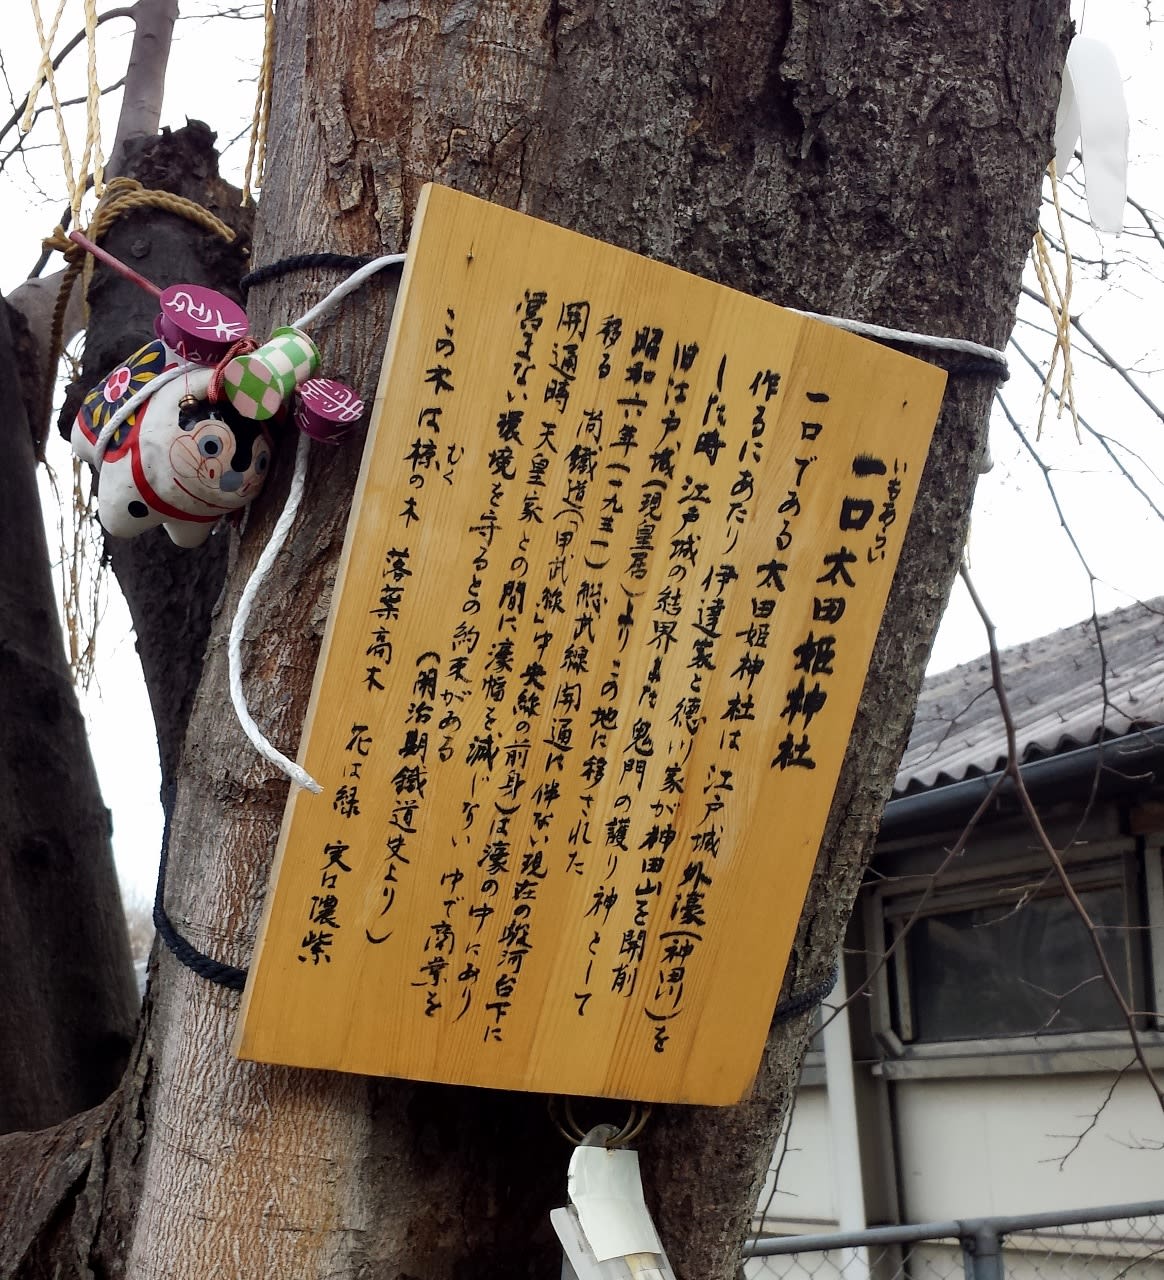 いもあらい
一口太田姫神社
一口である太田姫神社は 江戸城外濠(神田川)を
作るにあたり 伊達家と徳川家が神田山を開削
した時 江戸城の結界また鬼門の護り神として
旧江戸城(現皇居)よりこの地に移された
昭和六年(一九三一)総武線開通に伴ない現在の駿河台下に
移る 尚鐵道(「甲武線」中央線の前身)は濠の中にあり
開通時 天皇家との間に濠幅を減じない ゆで商業を
営まない環境を守るとの約束がある
(明治期鐵道史より)
むく
この木は椋の木 落葉高木 花は緑 実は濃紫